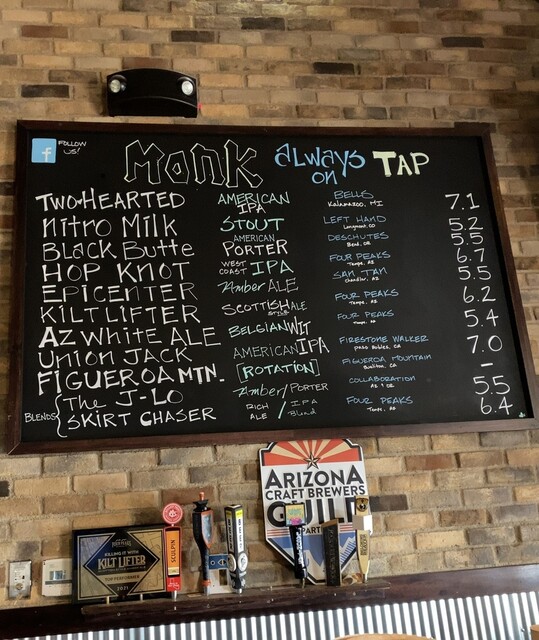 FOLLOW US!
MONK ALWAYS ON TAP
TWO-HEARTED AMERICAN IPA BELLS Kalamazoo, MI 7.1
NITRO MILK STOUT LEFT HAND Longmont, CO 5.2
BLACK BUTTE AMERICAN PORTER DESCHUTES Bend, OR 5.5
HOP KNOT WEST COAST IPA FOUR PEAKS Tempe, AZ 6.7
EPICENTER Amber ALE SAN TAN Chandler, AZ 5.5
KILT LIFTER SCOTTISH ALE STYLE FOUR PEAKS Tempe, AZ 6.2
AZ WHITE ALE BELGIAN WIT FOUR PEAKS Tempe, AZ 5.4
UNION JACK AMERICAN IPA FIRESTONE WALKER PASO Robles, CA 7.0
FIGUEROA MTN. [ROTATION] FIGUEROA MOUNTAIN Buellton, CA –
BLENDS { The J-LO Amber/PORTER COLLABORATION AZ & OR 5.5
SKIRT CHASER RICH ALE / IPA Blend FOUR PEAKS Tempe, AZ 6.4
ARIZONA
CRAFT BREWERS
GUILD
PART
KILLING IT WITH
KILT LIFTER
TOP PERFORMER
2021
SCULPIN